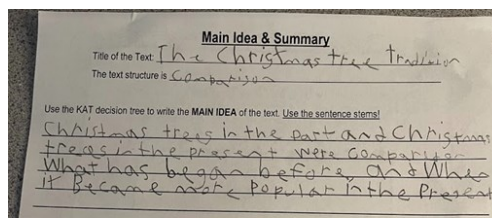 Main Idea & Summary
Title of the Text: The Christmas tree tradition
The text structure is Comparison
Use the KAT decision tree to write the MAIN IDEA of the text. Use the sentence stems!
Christmas trees in the past and Christmas
trees in the present were
What has began before, and When
it Became more Popular in the Present